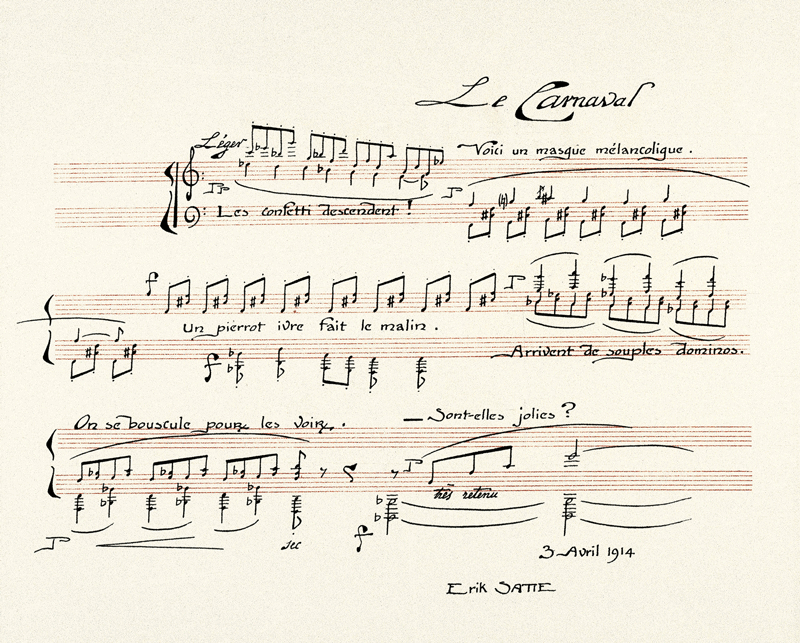 Le Carnaval
Léger
Voici un masque mélancolique .
Les confetti descendent !
Un pierrot ivre fait le malin .
Arrivent de souples dominos.
On se bouscule pour les voir .
— Sont-elles jolies ?
très retenu
sec
3 Avril 1914
Erik SATIE